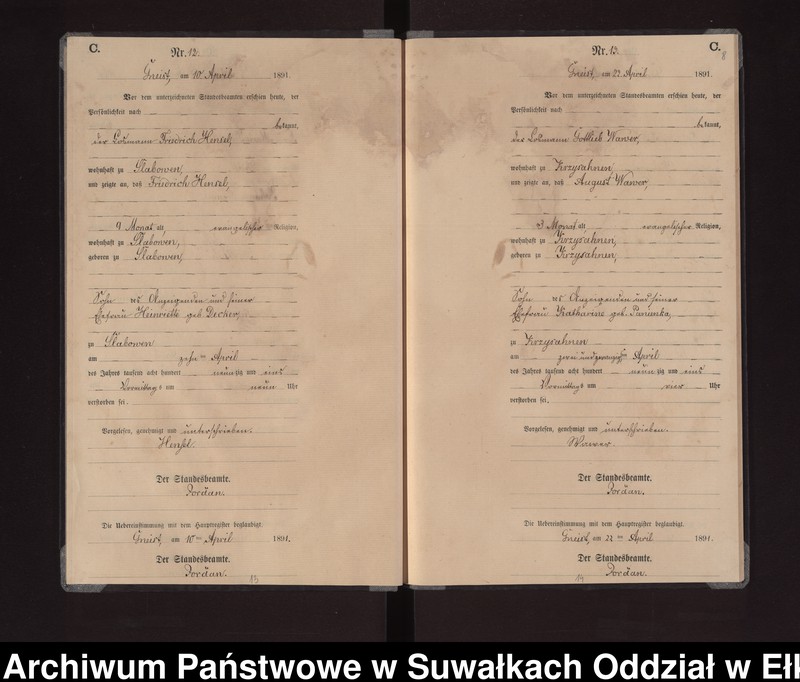 C.
Nr. 12.
Gneist, am 10ten April 1891.
Vor dem unterzeichneten Standesbeamten erschien heute, der
Persönlichkeit nach
bekannt,
der Losmann Friedrich Hensel,
wohnhaft zu Slabowen,
und zeigte an, daß Friedrich Hensel,
9 Monat alt, evangelischer Religion,
wohnhaft zu Slabowen,
geboren zu Slabowen,
Sohn des Anzeigenden und seiner
Ehefrau Henriette geb. Decker,
zu Slabowen
am zehnten April
des Jahres tausend acht hundert neunzig und eins
Vormittags um neun Uhr
verstorben sei.
Vorgelesen, genehmigt und unterschrieben.
Hensel.
Der Standesbeamte.
Jordan.
Die Uebereinstimmung mit dem Hauptregister beglaubigt.
Gneist, am 10ten April 1891.
Der Standesbeamte.
Jordan.
13
C.
8
Nr. 13.
Gneist, am 22 April 1891.
Vor dem unterzeichneten Standesbeamten erschien heute, der
Persönlichkeit nach
bekannt,
der Losmann Gottlieb Wawer,
wohnhaft zu Krzysahnen,
und zeigte an, daß August Wawer,
3 Monat alt evangelischer Religion,
wohnhaft zu Krzysahnen,
geboren zu Krzysahnen,
Sohn des Anzeigenden und seiner
Ehefrau Katharine geb.
zu Krzysahnen
am zwei und zwanzigsten April
des Jahres tausend acht hundert neunzig und eins
Vormittags um vier Uhr
verstorben sei.
Vorgelesen, genehmigt und unterschrieben.
Wawer
Der Standesbeamte.
Jordan.
Die Uebereinstimmung mit dem Hauptregister beglaubigt.
Gneist, am 22ten April 1891.
Der Standesbeamte.
Jordan.
14
Archiwum Państwowe w Suwałkach Oddział w Ełk